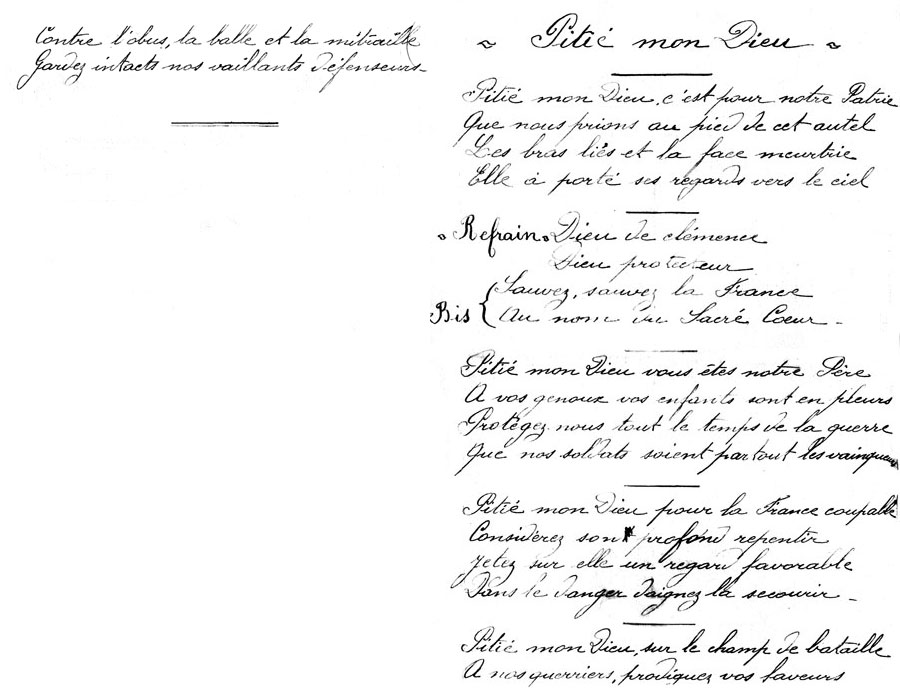 Contre l'obus, la balle et la mitraille
Gardez intacts nos vaillants défenseurs-
~ Pitié mon Dieu ~
Pitié mon Dieu, c'est pour notre Patrie
Que nous prions au pied de cet autel
Les bras liés et la face meurtrie
Elle à porté ses regards vers le ciel
~ Refrain ~ Dieu de clémence
Dieu protecteur
Sauvez, sauvez la France
Bis { Au nom du Sacré Coeur -
Pitié mon Dieu vous êtes notre Père
A vos genoux vos enfants sont en pleurs
Protégez nous tout le temps de la guerre
Que nos soldats soient partout les vainqueurs
Pitié mon Dieu pour la France coupable
Considérez son profond repentir
Jetez sur elle un regard favorable
Dans le danger daignez la secourir -
Pitié mon Dieu, sur le champ de bataille
A nos guerriers, prodiguez vos faveurs